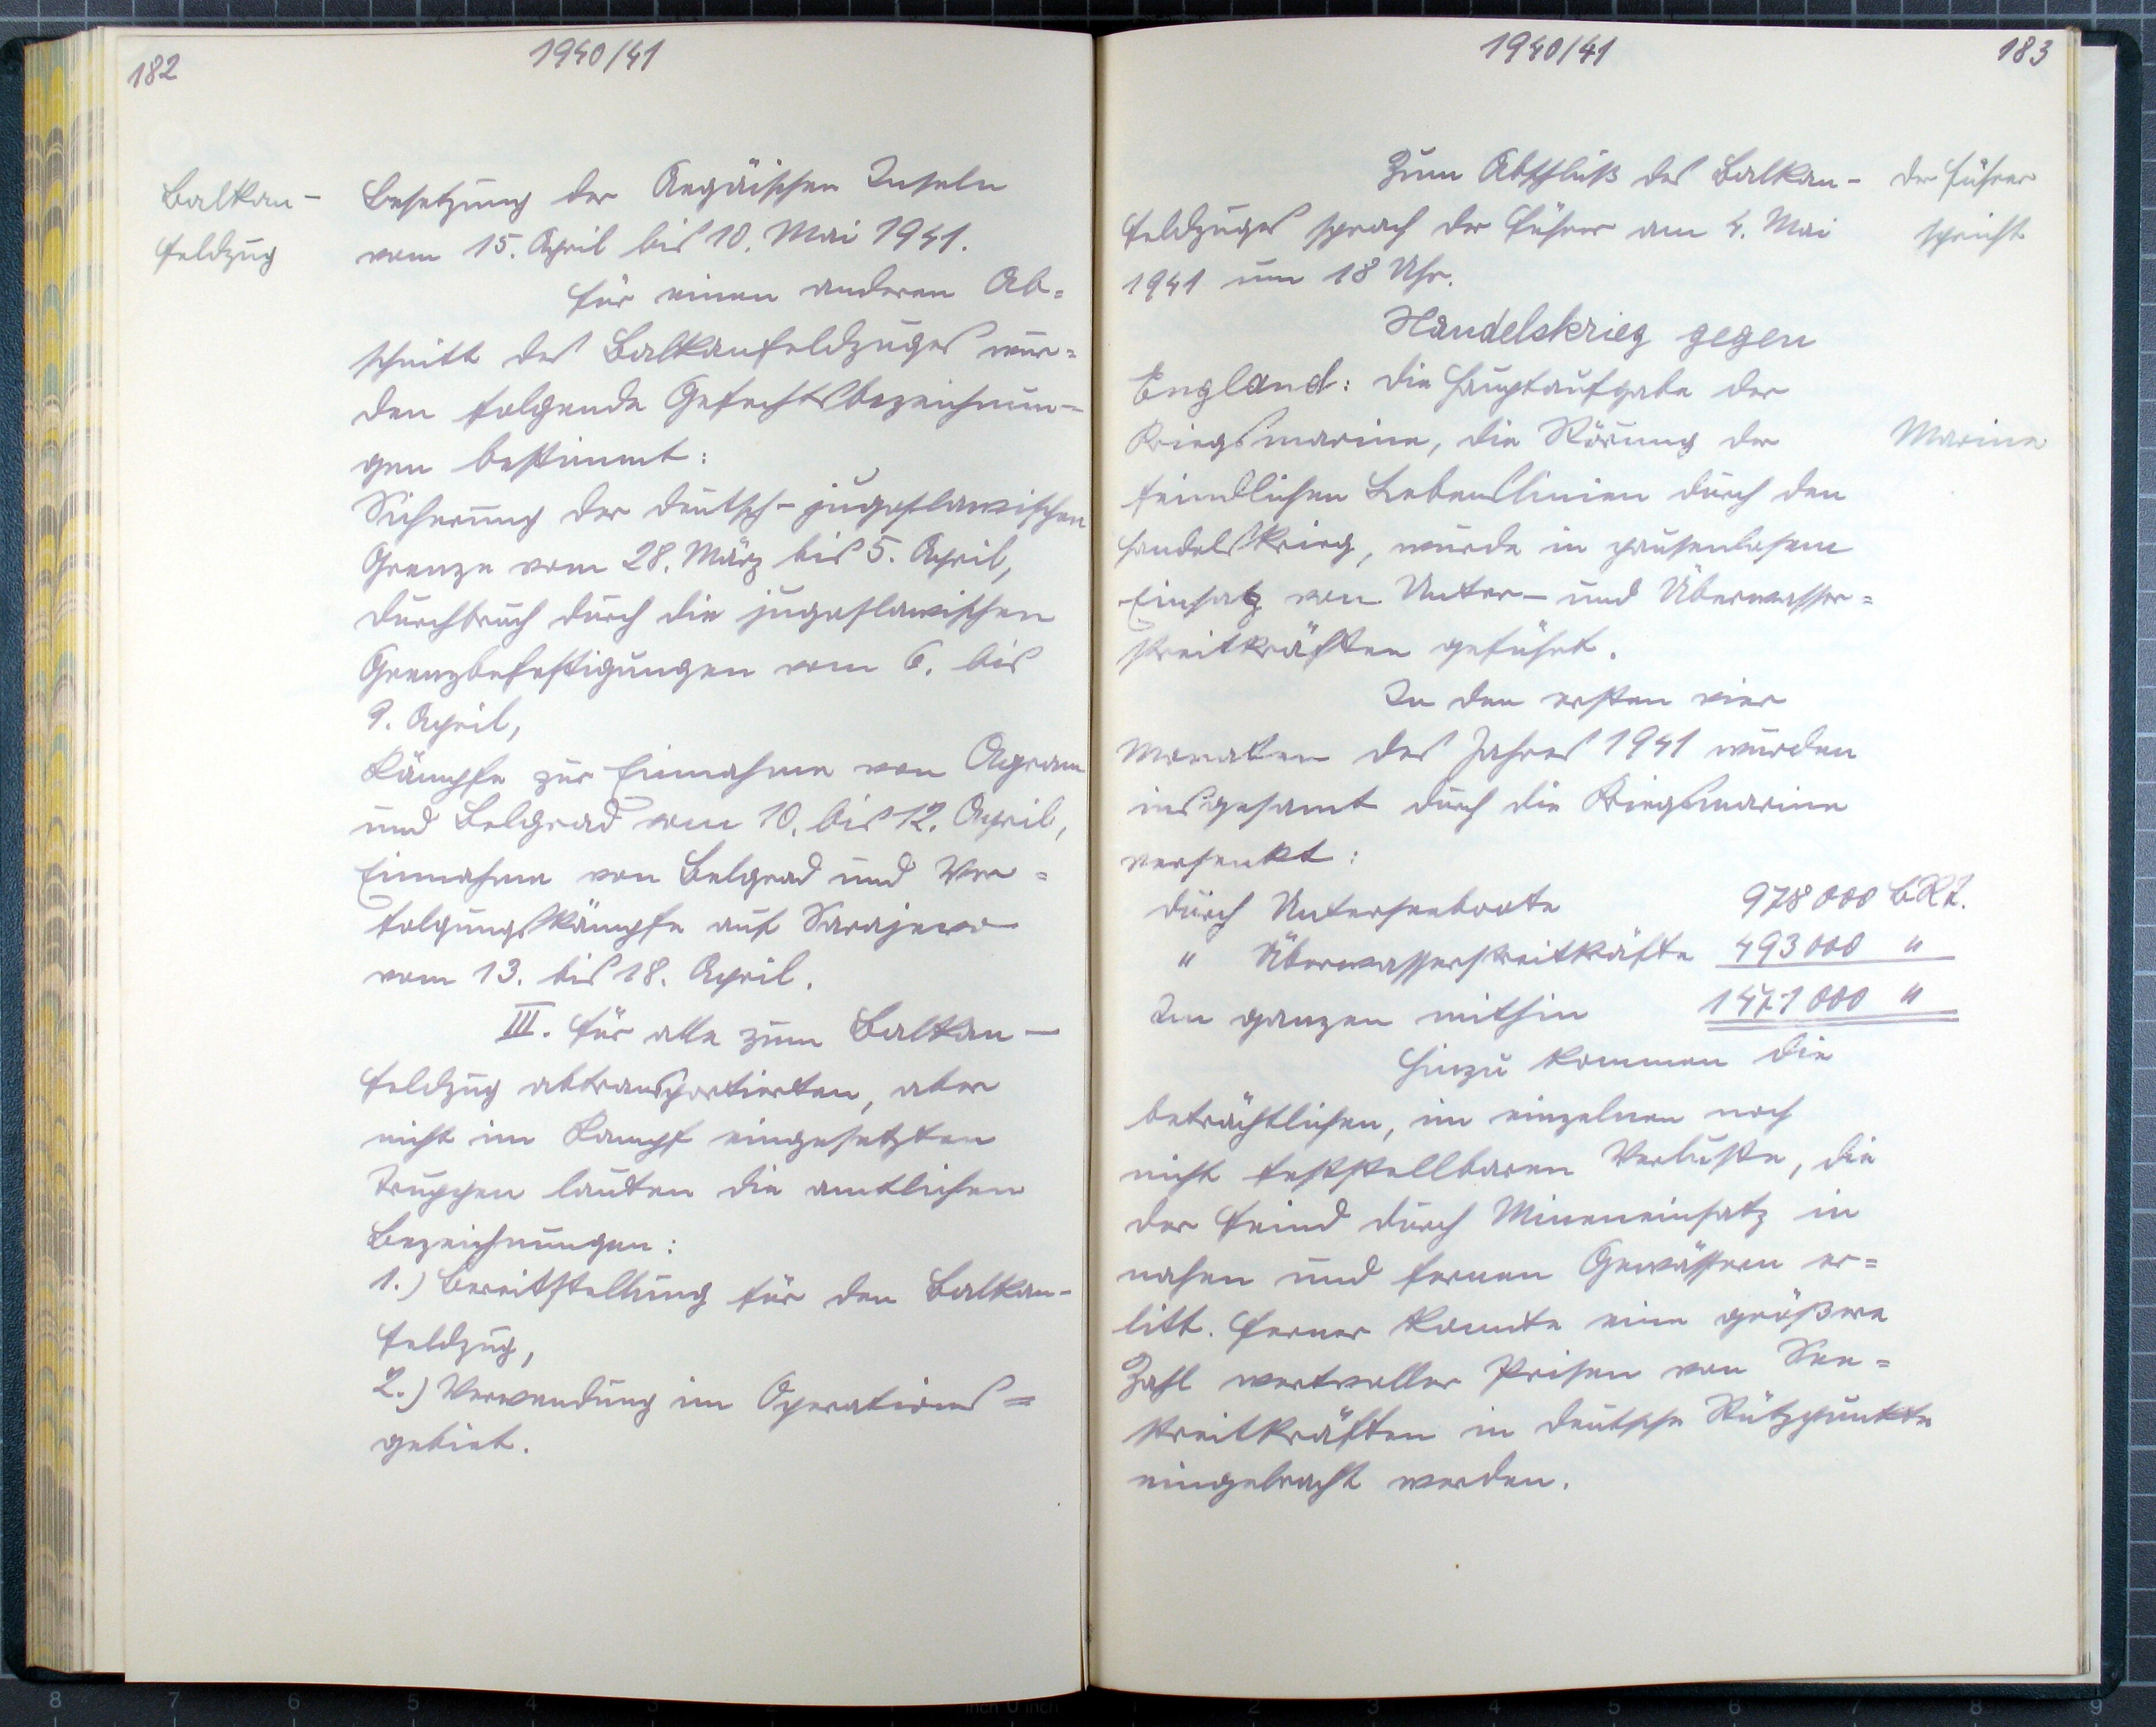 182
1940/41
Balkan-
feldzug
Besetzung der Aegäischen Inseln
vom 15. April bis 10. Mai 1941.
Für einen anderen Ab=
schnitt des Balkanfeldzuges wur=
den folgende Gefechtsbezeichnun-
gen bestimmt:
Sicherung der deutsch-jugoslawischen
Grenze vom 28. März bis 5. April,
Durchbruch durch die jugoslawischen
Grenzbefestigungen vom 6. bis
9. April,
Kämpfe zur Einnahme von Agram
und Belgrad vom 10. bis 12. April,
Einnahme von Belgrad und Ver=
folgungskämpfe auf Sarajewo
vom 13. bis 18. April.
III. Für alle zum Balkan-
feldzug abtransportierten, aber
nicht im Kampf eingesetzten
Truppen lauten die amtlichen
Bezeichnungen:
1.) Bereitstellung für den Balkan-
feldzug,
2.) Verwendung im Operations=
gebiet.
1940/41
183
Zum Abschluß des Balkan-
feldzuges sprach der Führer am 4. Mai
1941 um 18 Uhr.
Der Führer
spricht
Handelskrieg gegen
England: Die Hauptaufgabe der
Kriegsmarine, die Störung der
feindlichen Lebenslinien durch den
Handelskrieg, wurde in pausenlosem
Einsatz von Unter- und Überwasser=
streitkräften geführt.
Marine
In den ersten vier
Monaten des Jahres 1941 wurden
insgesamt durch die Kriegsmarine
versenkt:
durch Unterseeboote 978 000 BRT.
" Überwasserstreitkäfte 493 000 "
Im ganzen mithin 1471 000 "
Hinzu kommen die
beträchtlichen, im einzelnen noch
nicht feststellbaren Verluste, die
der Feind durch Mineneinsatz in
nahen und fernen Gewässern er=
litt. Ferner konnte eine größere
Zahl wertvoller Prisen von See=
streitkräften in deutsche Stützpunkte
eingebracht werden.
8 7 6 5 4 3 2 inch 0 inch 1 2 3 4 5 6 7 8 9